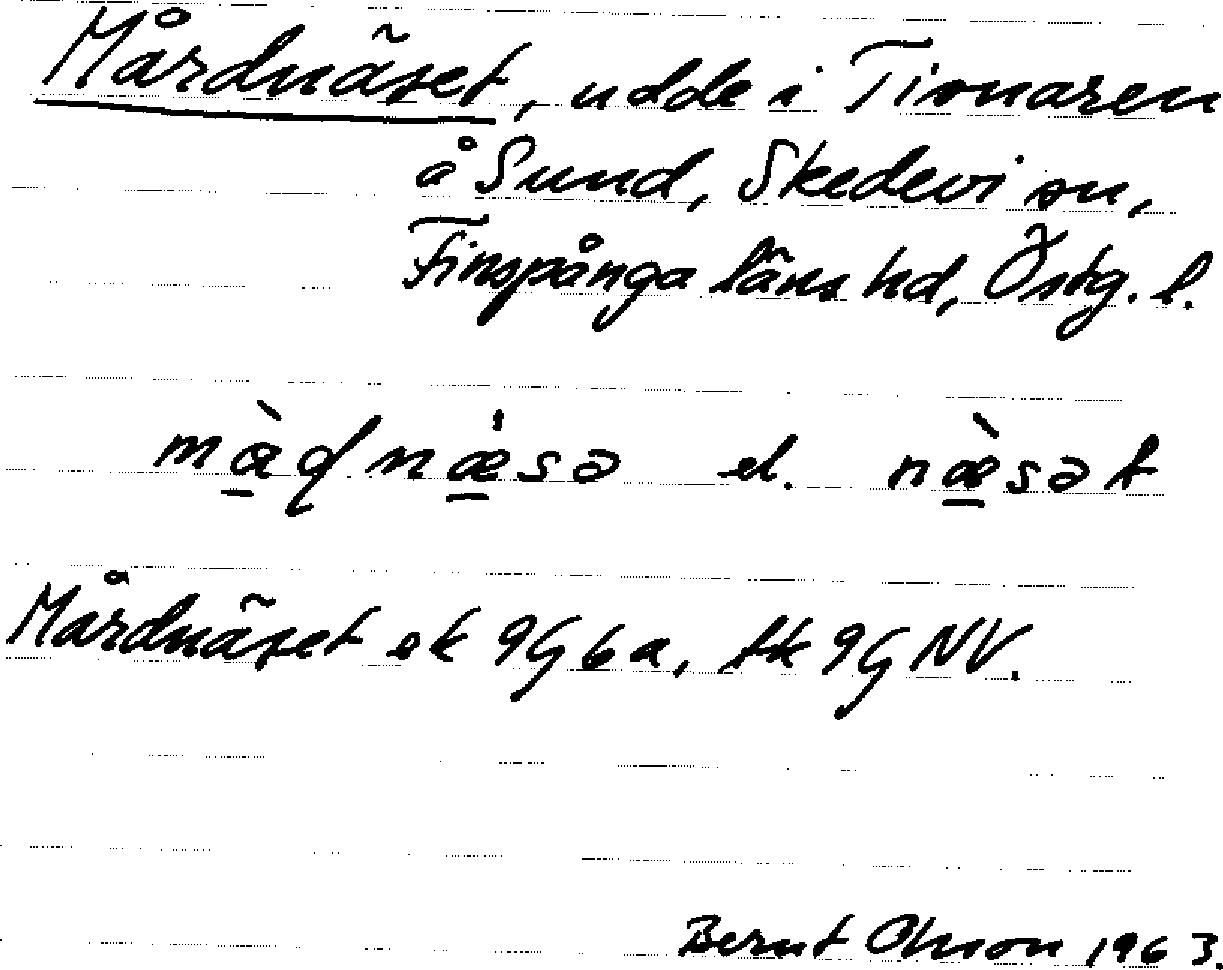 Mårdnäset, udde i Tisnaren
å Sund, Skedevi sn,
Finspånga läns hd, Östg. l.
el. næ̀sət
Mårdnäset ek 9G6a, tk 9G NV.
Bernt Olsson 1963.